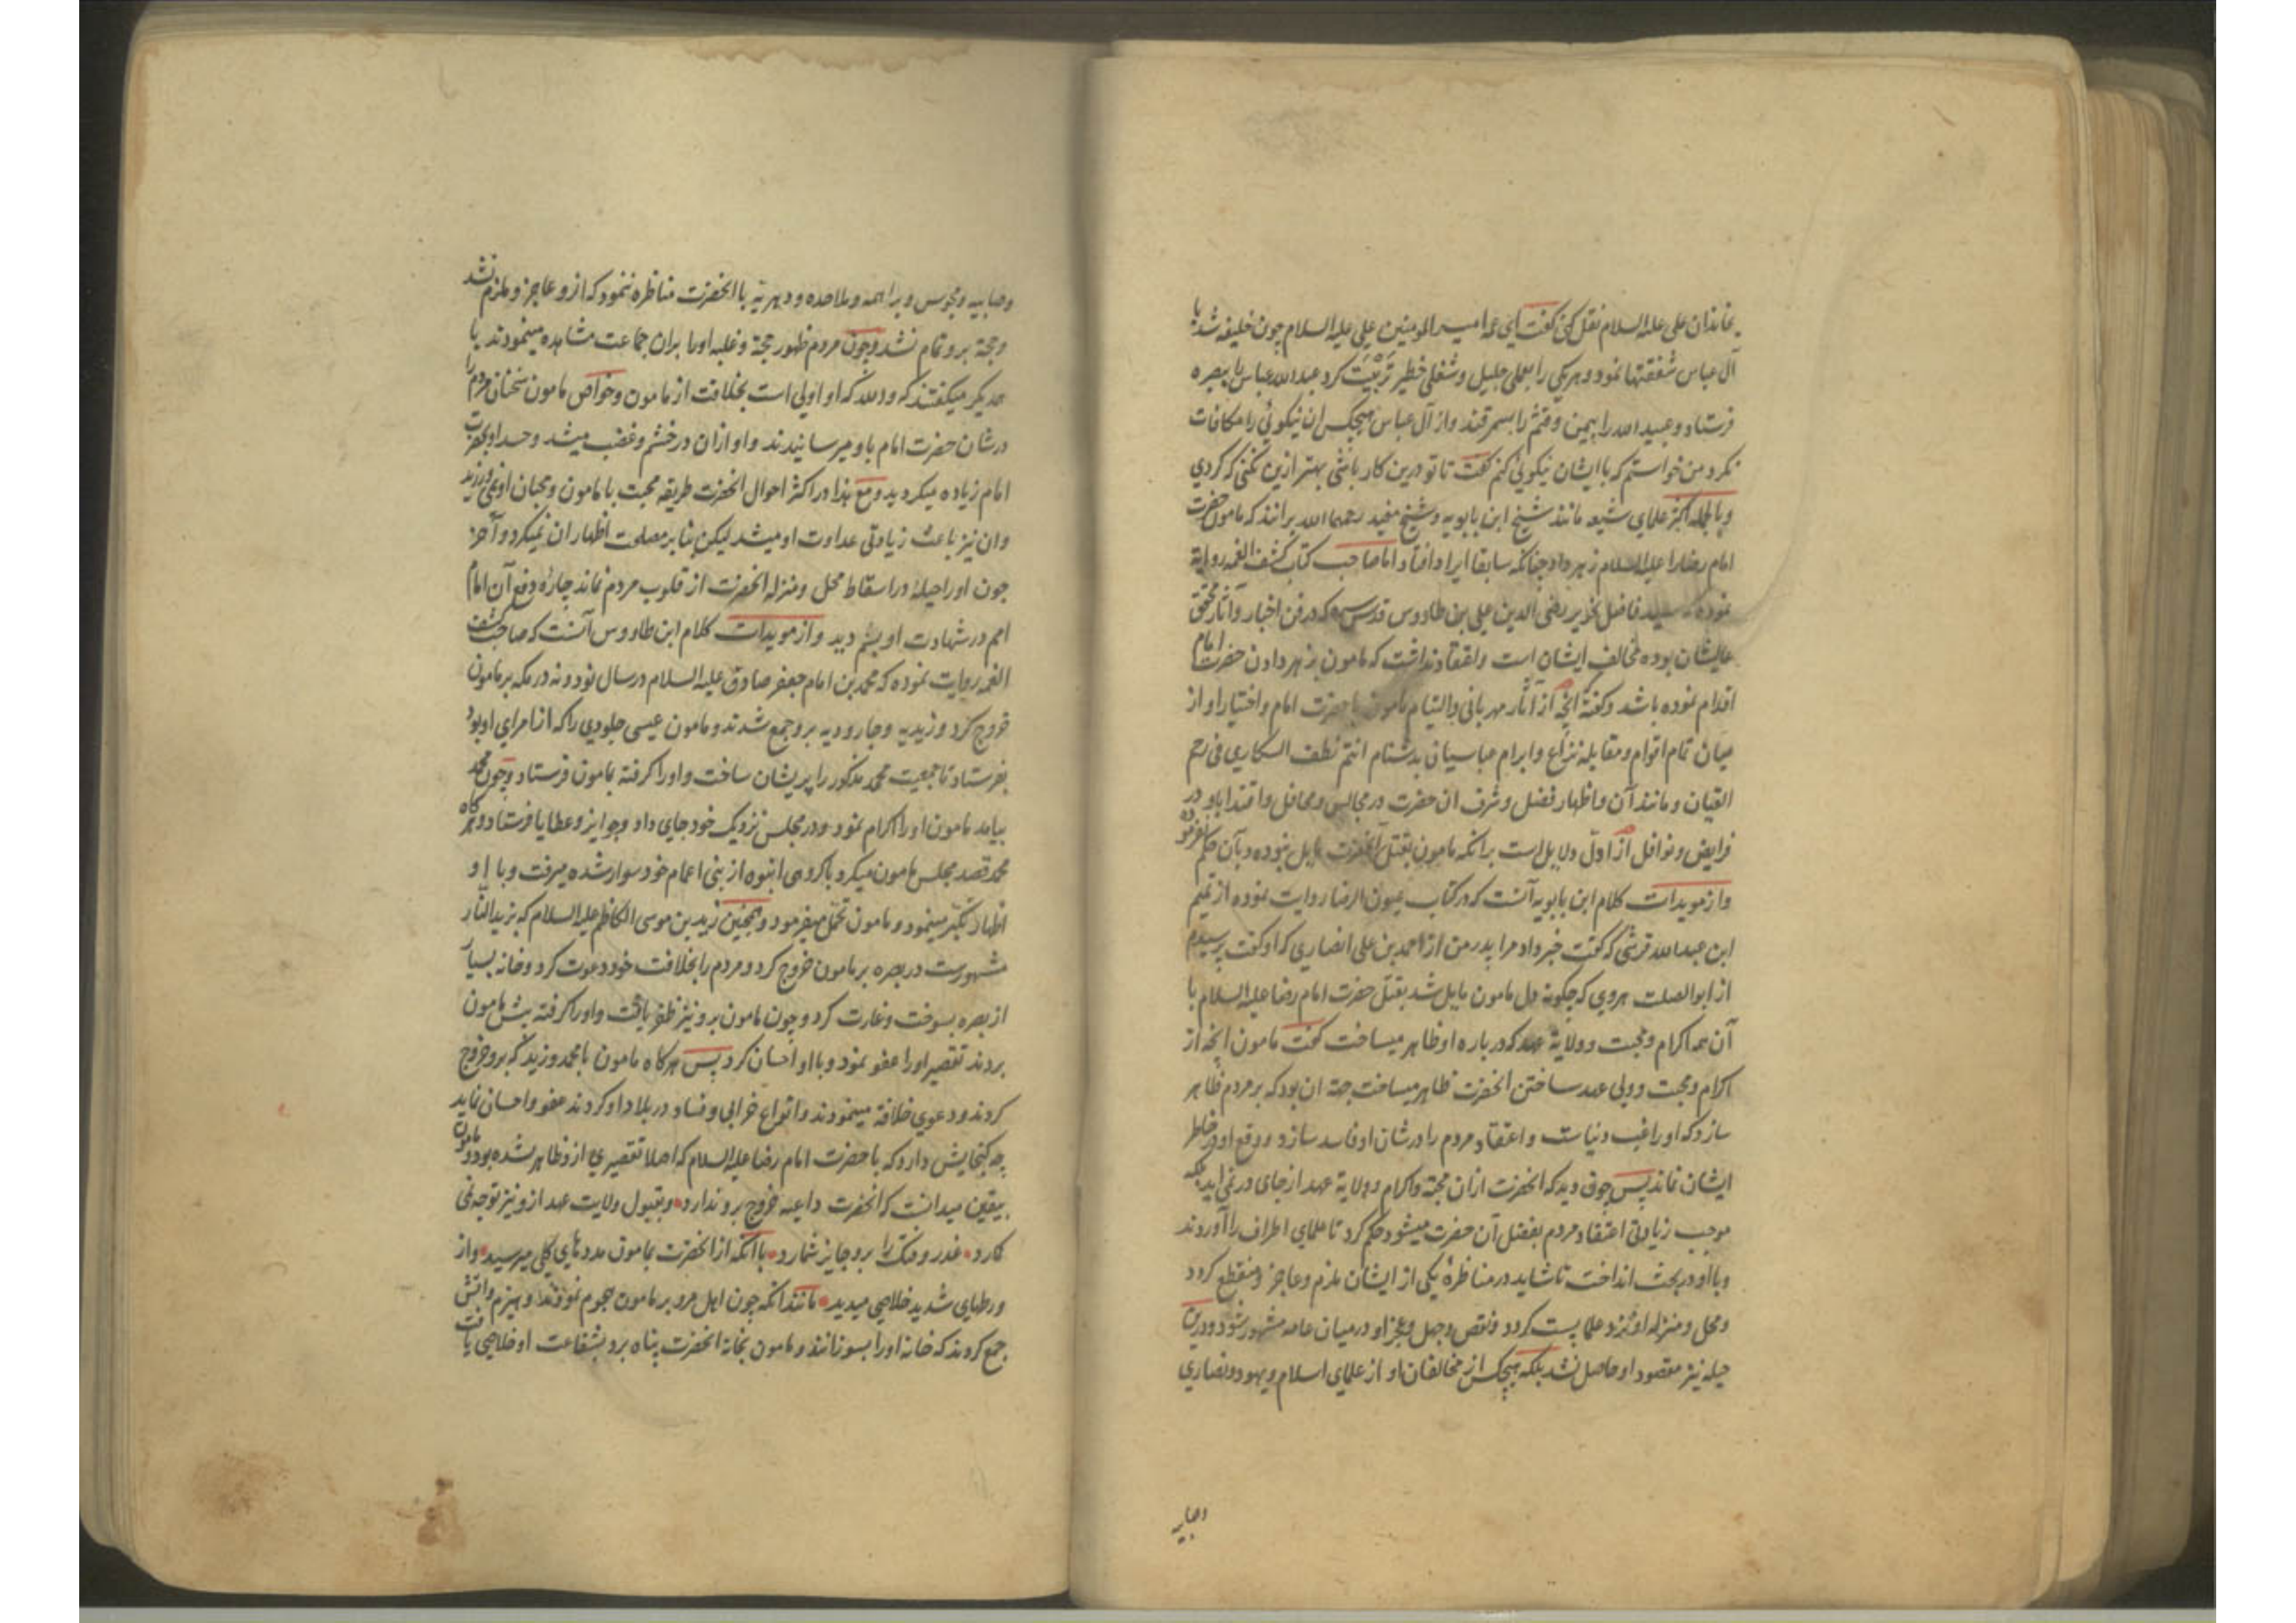 بخاندان علی علیه السلام نقل کنی گفت ای عمه امیر المومنین علی علیه السلام چون خلیفه شد با
آل عباس شفقتها نمود و هر یکی را بعملی جلیل و شغلی خطیر تربیت کرد عبدالله عباس را ببصره
فرستاد و عبیدالله را بیمن و قثم را بسمرقند و از آل عباس هیچکس ان نیکوئی را مکافات
نکرد من خواستم که با ایشان نیکوئی کنم گفت تا تو درین کار باشی بهتر ازین نکنی که کردی
و بالجمله اکثر علمای شیعه مانند شیخ ابن بابویه و شیخ مفید رحمهما الله برانند که مامون حضرت
امام رضا را علیه السلام زهر داد چنانکه سابقا ایراد افتاد اما صاحب کتاب کشف الغمه روایة
نموده که سید فاضل نحریر رضی الدین علی بن طاووس قدس سره که در فن اخبار و آثار محقق
عالیشان بوده مخالف ایشان است و اعتقاد نداشت که مامون بزهر دادن حضرت امام
اقدام نموده باشد و گفته انچه از آثار مهربانی والتیام مامون با حضرت امام و اختیار او از
میان تمام اقوام و مقابله نزاع و ابرام عباسیان بدشنام انتم نطف السکاری فی رحم
القیان و مانند آن و اظهار فضل و شرف ان حضرت در مجالس و محافل و اقتدا باو در
فرایض و نوافل از اول دلایل است برانکه مامون بقتل آنحضرت مایل نبوده و بآن حکم نفرموده
و از مویدات کلام ابن بابویه آنست که در کتاب عیون الرضا روایت نموده از تمیم
ابن عبدالله قرشی که گفت خبر داد مرا پدر من از احمد بن علی انصاری که او گفت پرسیدم
از ابوالصلت هروی که چگونه دل مامون مایل شد بقتل حضرت امام رضا علیه السلام با
آن همه اکرام و محبت و ولایة عهد که درباره او ظاهر میساخت گفت مامون انچه از
اکرام و محبت و ولی عهد ساختن انحضرت ظاهر میساخت جهة ان بود که بر مردم ظاهر
سازد که او راغب دنیاست و اعتقاد مردم را در شان او فاسد سازد و وقع او در خاطر
ایشان نماند پس چون دید که انحضرت ازان محبة و اکرام و ولایة عهد از جای در نمی اید بلکه
موجب زیادتی اعتقاد مردم بفضل آن حضرت میشود حکم کرد تا علمای اطراف را آوردند
و با او در بحث انداخت تا شاید در مناظره یکی از ایشان ملزم و عاجز و منقطع کردد
و محل و منزله او نزد علما پست کردد و نقص و جهل و عجز او در میان عامه مشهور شود و درین
حیله نیز مقصود او حاصل نشد بلکه هیچکس از مخالفان او از علمای اسلام و یهود و نصاری
وصابیه
وصابیه و مجوس و براهمه و ملاحده و دهریه با انحضرت مناظره ننمود که ازو عاجز و ملزم نشد
و حجة برو تمام نشد و چون مردم ظهور حجة و غلبه او را بران جماعت مشاهده مینمودند با
همدیکر میکفتند که والله که او اولی است بخلافت از مامون و خواص مامون سخنان مردم را
در شان حضرت امام باو میرسانیدند و او ازان در خشم و غضب میشد و حسد او بحضرت
امام زیاده میکردید و مع هذا در اکثر احوال انحضرت طریقه محبت با مامون و محبان او نمی ورزید
وان نیز باعث زیادتی عداوت او میشد لیکن بنابر مصلحت اظهار ان نمیکرد و آخر
چون او را حیلۀ در اسقاط محل و منزله انحضرت از قلوب مردم نماند چارۀ دفع آن امام
امم در شهادت او بسم دید و از مویدات کلام ابن طاووس آنست که صاحب کشف
الغمه روایت نموده که محمد بن امام جعفر صادق علیه السلام در سال نود و نه در مکه بر مامون
خروج کرد و زیدیه و جارودیه برو جمع شدند و مامون عیسی جلودی را که از امرای او بود
بفرستاد تا جمعیت محمد مذکور را پریشان ساخت و او را کرفته بمامون فرستاد و چون محمد
بیامد مامون او را اکرام نمود و در مجلس نزدیک خود جای داد و جوایز و عطایا فرستاد و هرکاه
محمد قصد مجلس مامون میکرد با کروهی انبوه از بنی اعمام خود سوار شده میرفت و با او
اظهار تکبر مینمود و مامون تحمل میفرمود و همچنین زید بن موسی الکاظم علیه السلام که بزید النار
مشهورست در بصره بر مامون خروج کرد و مردم را بخلافت خود دعوت کرد و خانه بسیار
از بصره بسوخت و غارت کرد و چون مامون برو نیز ظفر یافت و او را کرفته پیش مامون
بردند تقصیر او را عفو نمود و با او احسان کرد پس هرکاه مامون با محمد و زید که برو خروج
کردند و دعوی خلافة مینمودند و انواع خرابی و فساد در بلاد او کردند عفو و احسان نماید
چه کنجایش دارد که با حضرت امام رضا علیه السلام که اصلا تقصیری ازو ظاهر نشده بود و مامون
بیقین میدانست که انحضرت داعیه خروج برو ندارد و بقبول ولایت عهد ازو نیز توجه نمی
کمارد غدر و فتک را برو جایز شمارد با آنکه از انحضرت بمامون مددهای کلی میرسید و از
ورطهای شدید خلاصی میدید مانند انکه چون اهل مرو بر مامون هجوم نمودند و هیزم و اتش
جمع کردند که خانه او را بسوزانند و مامون بخانه انحضرت پناه برد بشفاعت او خلاصی یافت